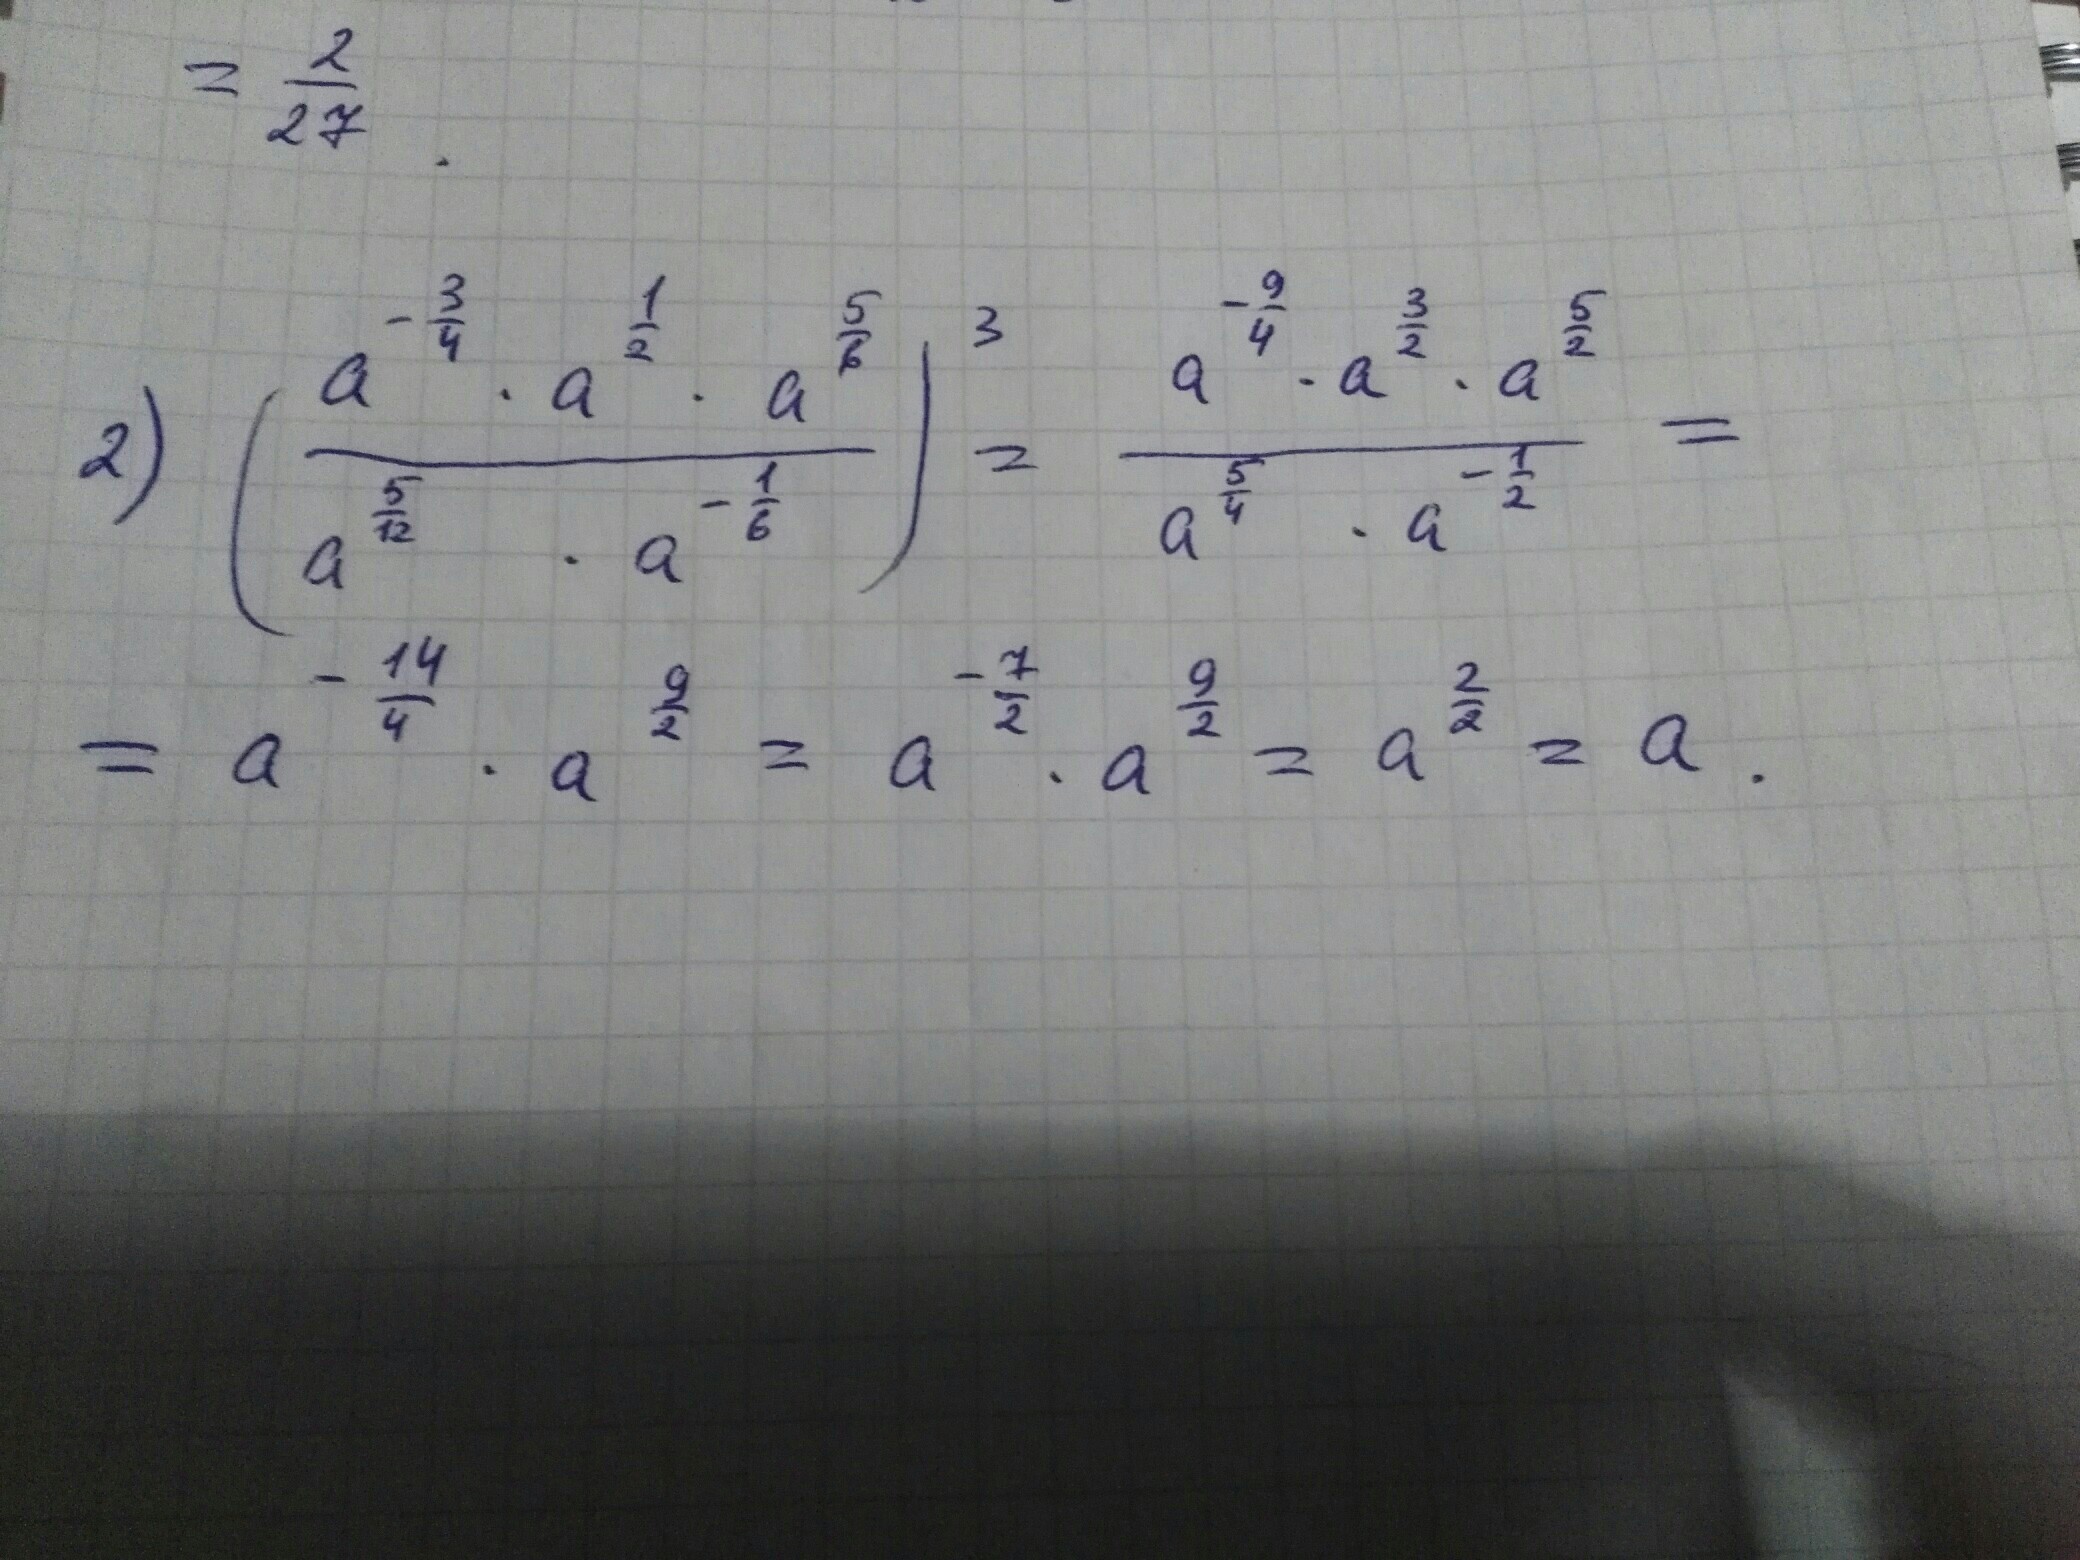 = 2/27 .
2) (a^{-3/4} · a^{1/2} · a^{5/6} / a^{5/12} · a^{-1/6})^3 = a^{-9/4} · a^{3/2} · a^{5/2} / a^{5/4} · a^{-1/2} =
= a^{-14/4} · a^{9/2} = a^{-7/2} · a^{9/2} = a^{2/2} = a .